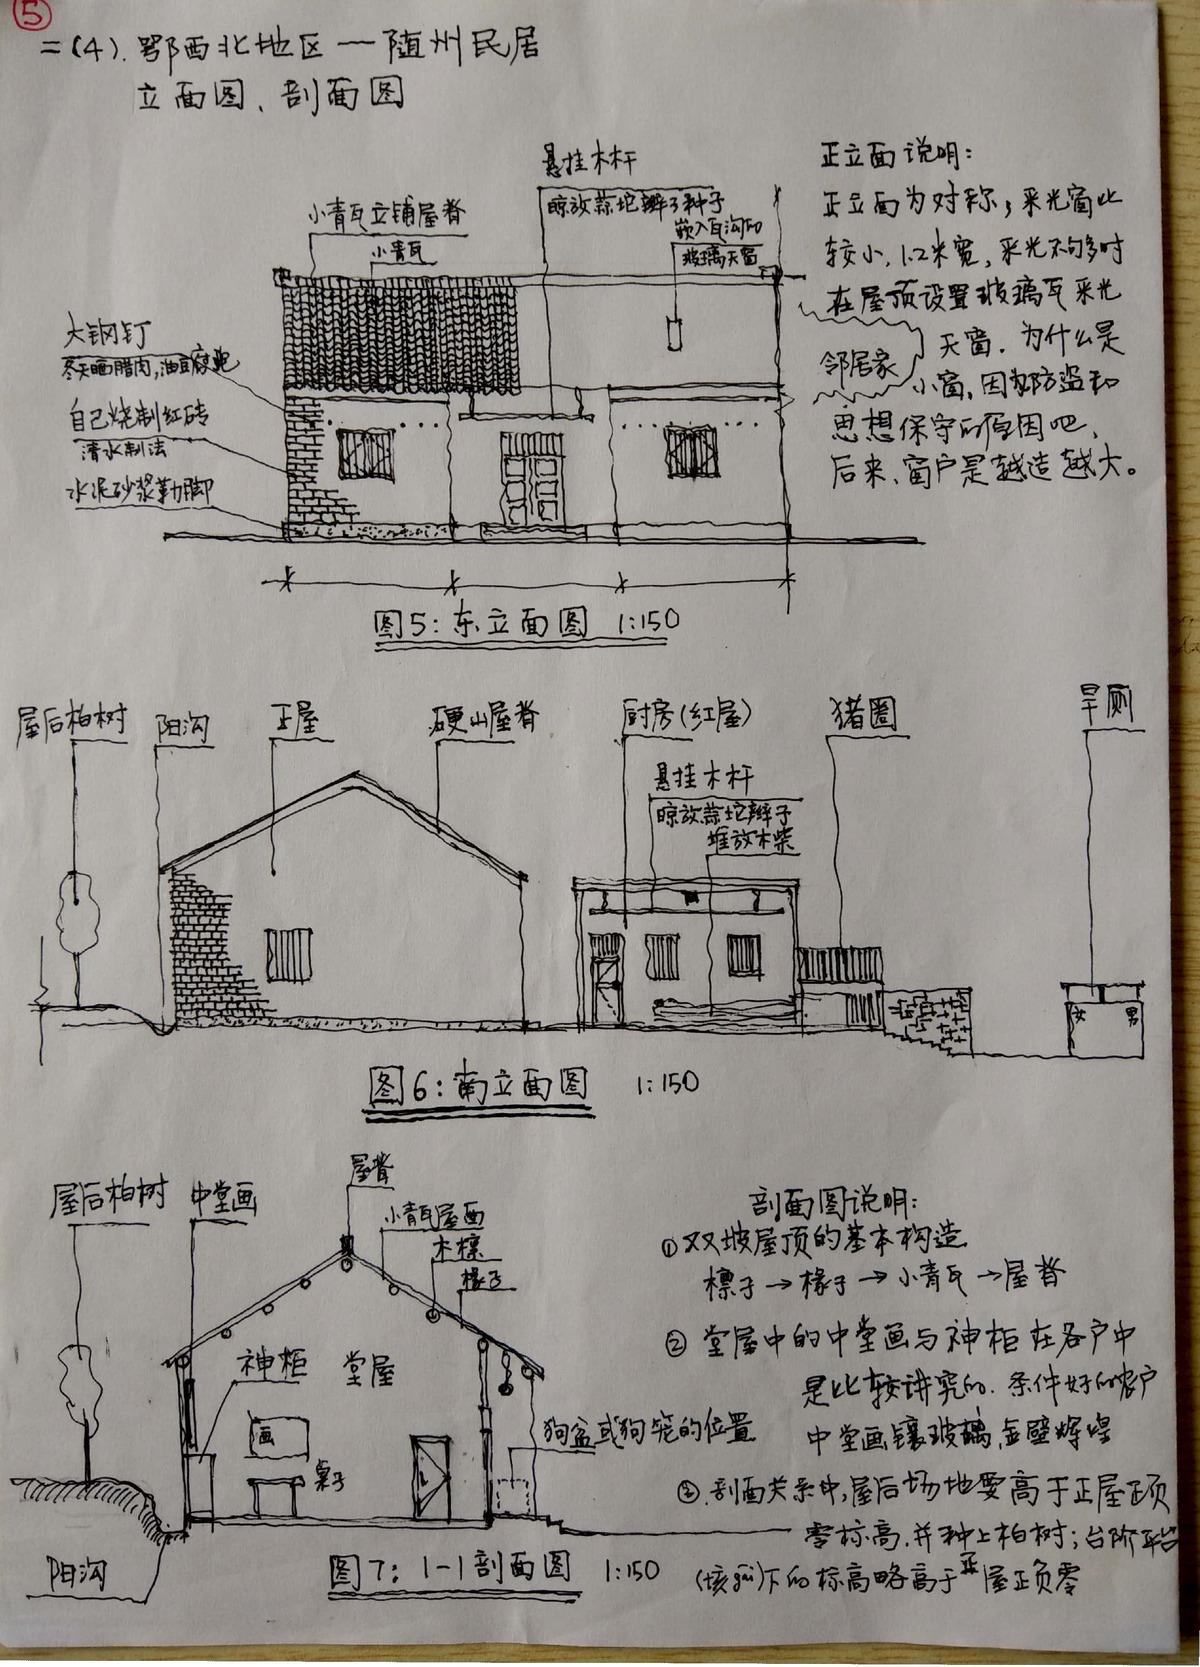 ⑤
二(4).鄂西北地区—随州民居
立面图、剖面图
悬挂木杆
晾放蒜坨辫子种子
嵌入瓦沟的
玻璃天窗
小青瓦立铺屋脊
小青瓦
大钢钉
冬天晒腊肉,油豆腐
自己烧制红砖
清水制法
水泥砂浆勒脚
正立面说明:
正立面为对称,采光窗比
较小,1.2米宽,采光不够多时
在屋顶设置玻璃瓦采光
天窗.为什么是
邻居家
小窗,因为防盗和
思想保守的原因吧、
后来,窗户是越造越大。
图5:东立面图 1:150
屋后柏树
阳沟
正屋
硬山屋脊
厨房(红屋)
猪圈
旱厕
悬挂木杆
晾放蒜坨辫子
堆放木柴
女 男
图6:南立面图 1:150
屋后柏树
中堂画
屋脊
小青瓦屋面
木檩
椽子
神柜
堂屋
画
桌子
狗盆或狗笼的位置
阳沟
图7:1-1剖面图 1:150
剖面图说明:
①双坡屋顶的基本构造
檩子→椽子→小青瓦→屋脊
②堂屋中的中堂画与神柜在各户中
是比较讲究的.条件好的农户
中堂画镶玻璃,金壁辉煌
③.剖面关系中,屋后场地要高于正屋正负
零标高.并种上柏树;台阶平台
(该gāi)下的标高略高于正屋正负零